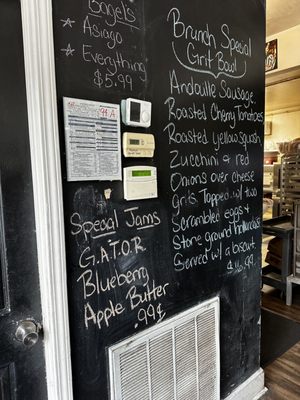 Bagels
☆ Asiago
☆ Everything
$5.99
Special Jams
G.A.T.O.R
Blueberry
Apple Butter
.99¢
Brunch Special
Grit Bowl
Andouille Sausage
Roasted Cherry Tomatoes
Roasted yellow squash
Zucchini & red
Onions over cheese
grits. Topped w/ two
Scrambled eggs &
Stone ground
Served w/ a biscuit
$16.99